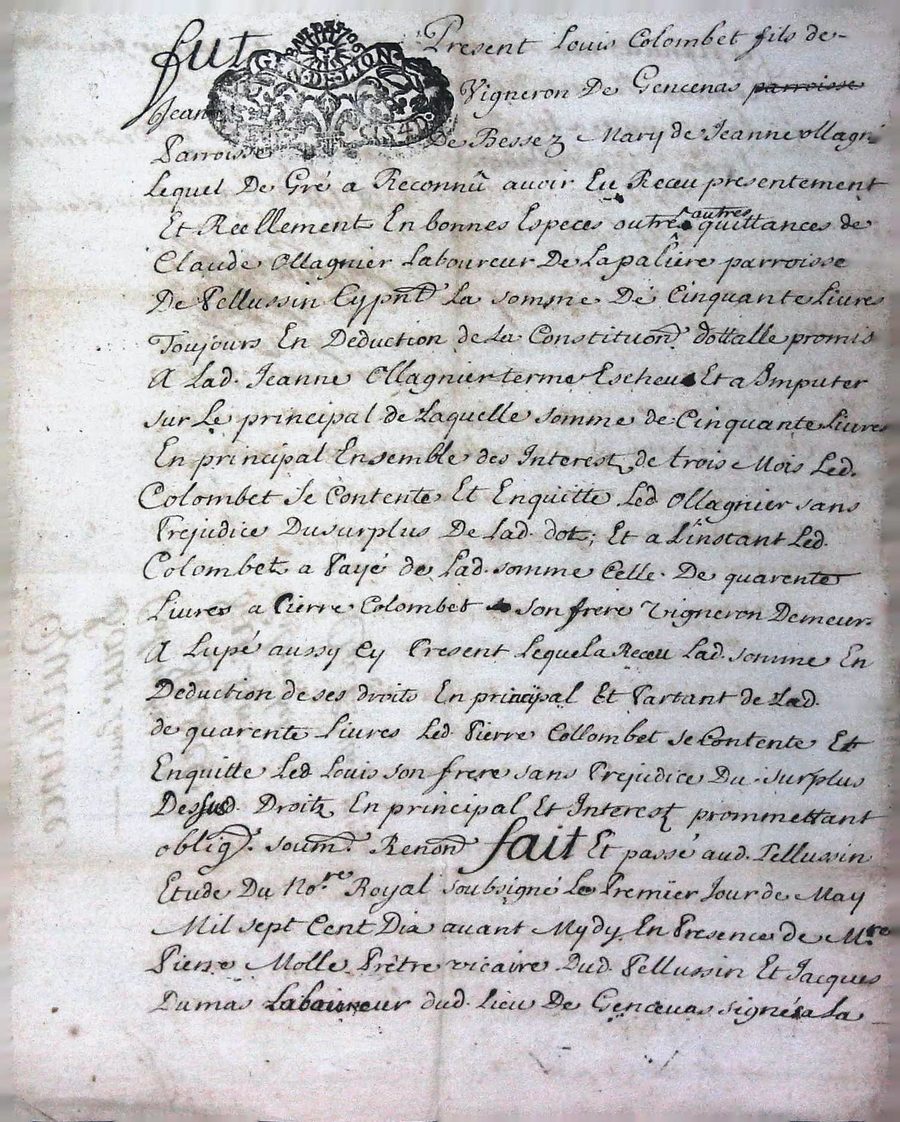 fut Present Louis Colombet fils de
GEN. DE LION
Jean Vigneron De Gencenas parroisse
SIS 4 D.
Parroisse De Bessez Mary de Jeanne ollagn.
Lequel De Gré a Reconnû avoir Eu Receu presentement
Et Reellement En bonnes Especes outre autres quittances de
Claude Ollagnier Laboureur De Lapalîere parroisse
De Pellussin Cy pnt La somme De Cinquante Livres
Toujours En Deduction de La Constituon dottalle promis
A Lad. Jeanne Ollagnier terme Escheus Et a Imputer
sur Le principal de Laquelle somme de Cinquante Livres
En principal Ensemble des Interest de trois Mois Led.
Colombet se Contente Et Enquitte Led Ollagnier sans
Prejudice Du surplus De Lad. dot; Et a L'instant Led.
Colombet a Payé de Lad. somme Celle De quarente
Livres a Pierre Colombet son frere Vigneron Demeur.
A Lupé aussy Cy Present Lequel a Receu Lad. somme En
Deduction de ses droits En principal Et Partant de Lad.
de quarente Livres Led Pierre Collombet se Contente Et
Enquitte Led Louis son frere sans Prejudice Du surplus
Dessusd. Droitz En principal Et Interest promettant
obligt. soumt. Renont fait Et passé aud. Pellussin
Etude Du No.re Royal soubsigné Le Premier Jour de May
Mil sept Cent Dix avant Mydy En Presence de M.re
Pierre Molle Prêtre vicaire Dud. Pellussin Et Jacques
Dumas Laboureur dud. Lieu De Gencenas signés a La